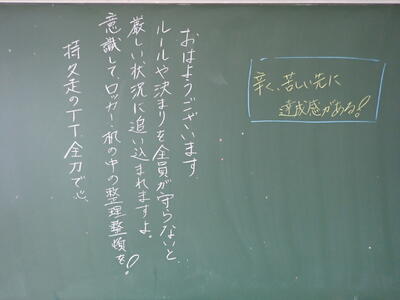 おはようございます。
ルールや決まりを全員が守らないと、
厳しい状況に追い込まれますよ。
意識して、ロッカー、机の中の整理整頓を!
持久走のTT、全力で。
辛く、苦しい先に
達成感がある!